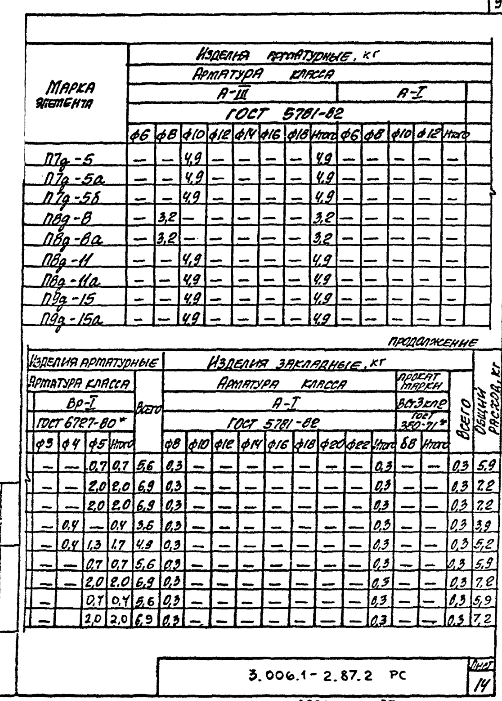 Марка элемента
Изделия арматурные, кг
Арматура класса
А-III А-I
ГОСТ 5781-82
ф6 ф8 ф10 ф12 ф14 ф16 ф18 Итого ф6 ф8 ф10 ф12 Итого
П7д-5 — — 4,9 — — — — 4,9 — — — — —
П7д-5а — — 4,9 — — — — 4,9 — — — — —
П7д-5б — — 4,9 — — — — 4,9 — — — — —
П8д-8 — 3,2 — — — — — 3,2 — — — — —
П8д-8а — 3,2 — — — — — 3,2 — — — — —
П8д-11 — — 4,9 — — — — 4,9 — — — — —
П8д-11а — — 4,9 — — — — 4,9 — — — — —
П9д-15 — — 4,9 — — — — 4,9 — — — — —
П9д-15а — — 4,9 — — — — 4,9 — — — — —
продолжение
Изделия арматурные Изделия закладные, кг Общий расход, кг
Арматура класса Всего Арматура класса Прокат марки Всего
Вр-I А-I Вст3кп2
ГОСТ 6727-80* ГОСТ 5781-82 ГОСТ 380-71*
ф3 ф4 ф5 Итого ф8 ф10 ф12 ф14 ф16 ф18 ф20 ф22 Итого δ8 Итого
— — 0,7 0,7 5,6 0,3 — — — — — — — 0,3 — — 0,3 5,9
— — 2,0 2,0 6,9 0,3 — — — — — — — 0,3 — — 0,3 7,2
— — 2,0 2,0 6,9 0,3 — — — — — — — 0,3 — — 0,3 7,2
— 0,4 — 0,4 3,6 0,3 — — — — — — — 0,3 — — 0,3 3,9
— 0,4 1,3 1,7 4,9 0,3 — — — — — — — 0,3 — — 0,3 5,2
— — 0,7 0,7 5,6 0,3 — — — — — — — 0,3 — — 0,3 5,9
— — 2,0 2,0 6,9 0,3 — — — — — — — 0,3 — — 0,3 7,2
— — 0,7 0,7 5,6 0,3 — — — — — — — 0,3 — — 0,3 5,9
— — 2,0 2,0 6,9 0,3 — — — — — — — 0,3 — — 0,3 7,2
3.006.1-2.87.2 РС
Лист
14